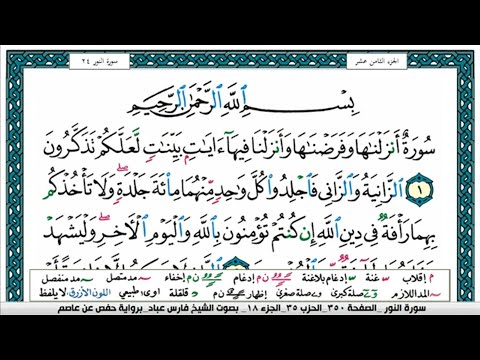 الجزء الثامن عشر
سورة النور ٢٤
بِسْمِ اللَّهِ الرَّحْمَٰنِ الرَّحِيمِ
سُورَةٌ أَنزَلْنَاهَا وَفَرَضْنَاهَا وَأَنزَلْنَا فِيهَا آيَاتٍ بَيِّنَاتٍ لَّعَلَّكُمْ تَذَكَّرُونَ
١ الزَّانِيَةُ وَالزَّانِي فَاجْلِدُوا كُلَّ وَاحِدٍ مِّنْهُمَا مِائَةَ جَلْدَةٍ ۖ وَلَا تَأْخُذْكُم
بِهِمَا رَأْفَةٌ فِي دِينِ اللَّهِ إِن كُنتُمْ تُؤْمِنُونَ بِاللَّهِ وَالْيَوْمِ الْآخِرِ ۖ وَلْيَشْهَدْ
م إقلاب غنة إدغام بلاغنة ن م إدغام ن م إخفاء مد متصل مد منفصل
المد اللازم صلة كبرى صلة صغرى إظهار ن م قلقلة اوى طبيعي اللون الأزرق لا يلفظ
سورة النور _الصفحة ٣٥٠_ الحزب ٣٥_ الجزء ١٨_ بصوت الشيخ فارس عباد_ برواية حفص عن عاصم